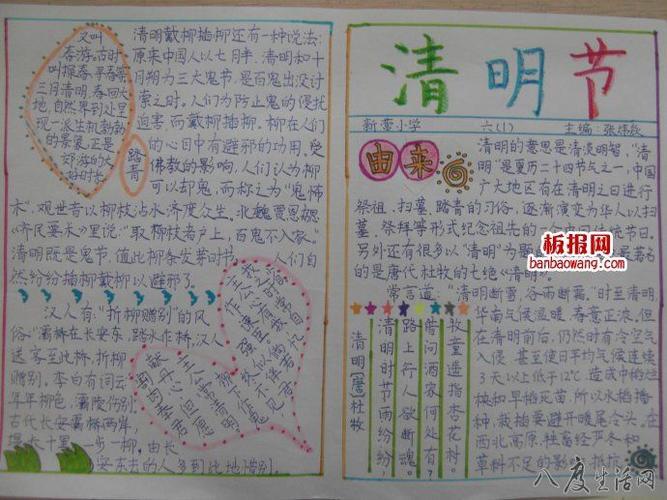 又叫
春游。古时
叫探春、寻春等。
三月清明,春回大
地,自然界到处呈
现一派生机勃勃
的景象,正是
郊游的大
好时光
踏青
清明戴柳插柳还有一种说法:
原来中国人以七月半、清明和十
月朔为三大鬼节,是百鬼出没讨
索之时。人们为防止鬼的侵扰
迫害,而戴柳插柳。柳在人们
的心目中有避邪的功用。受
佛教的影响,人们认为柳
可以却鬼,而称之为“鬼怖
木”,观世音以柳枝沾水济度众生。北魏贾思勰
《齐民要术》里说:“取柳枝著户上,百鬼不入家。”
清明既是鬼节,值此柳条发芽时节,人们自
然纷纷插柳戴柳以避邪了。
汉人有“折柳赠别”的风
俗:“灞桥在长安东,跨水作桥,汉人
送客至此桥,折柳
赠别。李白有词云:
年年柳色,灞陵伤别。
古代长安灞桥两岸,
堤长十里,一步一柳,由长
安东去的人多到此地惜别,
清明节
新蕾小学
六(1)
主编:张炜敏
由来
清明的意思是清淡明智,“清
明”是夏历二十四节气之一,中国
广大地区有在清明之日进行
祭祖、扫墓、踏青的习俗,逐渐演变为华人以扫
墓、祭拜等形式纪念祖先的
节日。
另外还有很多以“清明”为题
著名
的是唐代杜牧的七绝《清明》。
常言道:“清明断雪,谷雨断霜。”时至清明,
华南气候温暖,春意正浓。但
在清明前后,仍然时有冷空气
入侵,甚至使日平均气候连续
3天以上低于12℃,造成中稻烂
秧和早稻死苗,所以水稻播
种、栽插要避开暖尾冷头。在
西北高原,牲畜经严冬和
草料不足的影响,抵抗
清明 [唐] 杜牧
清明时节雨纷纷,
路上行人欲断魂。
借问酒家何处有?
牧童遥指杏花村。
板报网
banbaowang.com
八度生活网